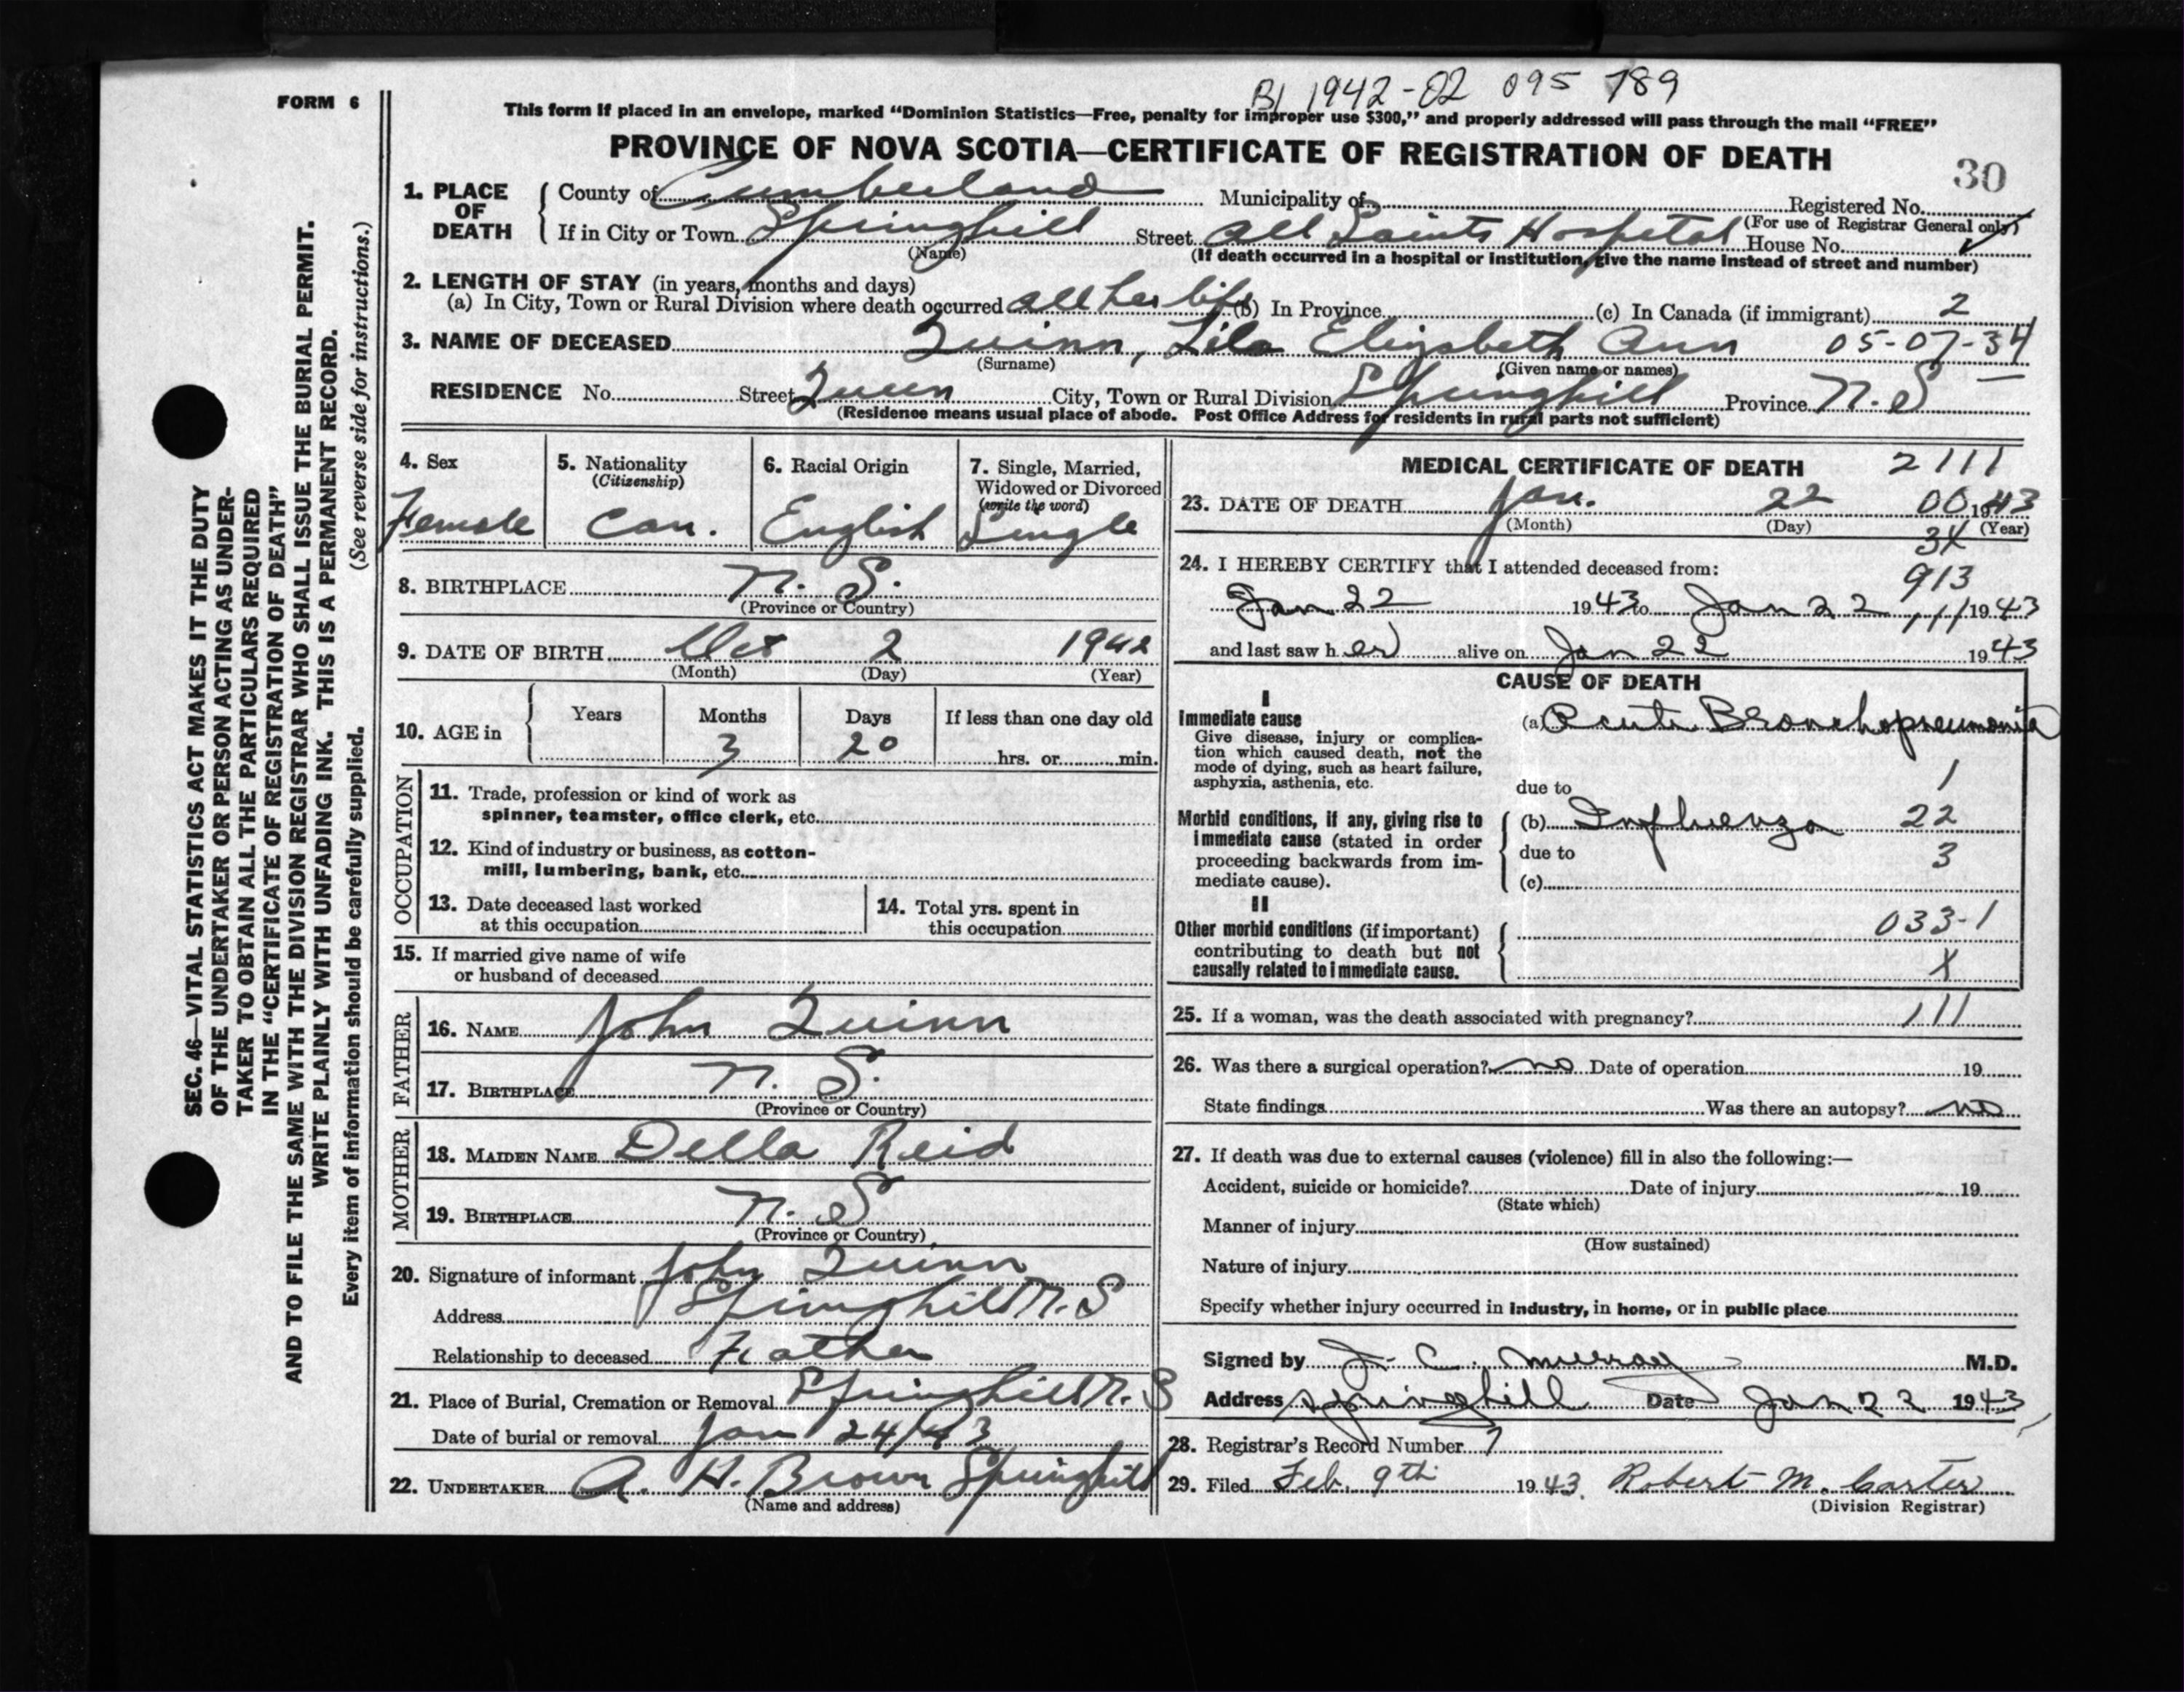 B1 1942-02 095 789
FORM 6
This form if placed in an envelope, marked “Dominion Statistics—Free, penalty for improper use $300,” and properly addressed will pass through the mail “FREE”
PROVINCE OF NOVA SCOTIA—CERTIFICATE OF REGISTRATION OF DEATH
30
1. PLACE OF DEATH
County of Cumberland Municipality of Registered No.
(For use of Registrar General only)
If in City or Town Springhill Street All Saints Hospital House No.
(Name) (If death occurred in a hospital or institution, give the name instead of street and number)
2. LENGTH OF STAY (in years, months and days)
(a) In City, Town or Rural Division where death occurred all her life (b) In Province (c) In Canada (if immigrant) 2
3. NAME OF DECEASED Quinn, Lila Elizabeth Ann 05-07-34
(Surname) (Given name or names)
RESIDENCE No. Street Queen City, Town or Rural Division Springhill Province N.S
(Residence means usual place of abode. Post Office Address for residents in rural parts not sufficient)
4. Sex Female
5. Nationality (Citizenship) Can.
6. Racial Origin English
7. Single, Married, Widowed or Divorced (write the word) Single
8. BIRTHPLACE N. S.
(Province or Country)
9. DATE OF BIRTH Oct 2 1942
(Month) (Day) (Year)
10. AGE in Years Months 3 Days 20 If less than one day old hrs. or min.
OCCUPATION
11. Trade, profession or kind of work as
spinner, teamster, office clerk, etc.
12. Kind of industry or business, as cotton-
mill, lumbering, bank, etc.
13. Date deceased last worked
at this occupation
14. Total yrs. spent in
this occupation
15. If married give name of wife
or husband of deceased
FATHER
16. NAME John Quinn
17. BIRTHPLACE N. S.
(Province or Country)
MOTHER
18. MAIDEN NAME Della Reid
19. BIRTHPLACE N. S
(Province or Country)
20. Signature of informant John Quinn
Address Springhill N. S
Relationship to deceased Father
21. Place of Burial, Cremation or Removal Springhill N. S
Date of burial or removal Jan 24/43
22. UNDERTAKER A. H. Brown Springhill
(Name and address)
MEDICAL CERTIFICATE OF DEATH 2111
23. DATE OF DEATH Jan. 22 00 1943
(Month) (Day) (Year)
34
24. I HEREBY CERTIFY that I attended deceased from:
913
Jan 22 1943 to Jan 22 111 1943
and last saw her alive on Jan 22 1943
CAUSE OF DEATH
I
Immediate cause
Give disease, injury or complica-
tion which caused death, not the
mode of dying, such as heart failure,
asphyxia, asthenia, etc.
(a) Acute Bronchopneumonia
due to 1
Morbid conditions, if any, giving rise to
immediate cause (stated in order
proceeding backwards from im-
mediate cause).
(b) Influenza 22
due to 3
(c)
II
Other morbid conditions (if important)
contributing to death but not
causally related to immediate cause.
033-1
X
25. If a woman, was the death associated with pregnancy? 111
26. Was there a surgical operation? no Date of operation 19
State findings Was there an autopsy? no
27. If death was due to external causes (violence) fill in also the following:—
Accident, suicide or homicide? Date of injury 19
(State which)
Manner of injury
(How sustained)
Nature of injury
Specify whether injury occurred in industry, in home, or in public place
Signed by J. C. Murray M.D.
Address Springhill Date Jan 23 1943
28. Registrar's Record Number 7
29. Filed Feb. 9th 1943. Robert M. Carter
(Division Registrar)
SEC. 46—VITAL STATISTICS ACT MAKES IT THE DUTY
OF THE UNDERTAKER OR PERSON ACTING AS UNDER-
TAKER TO OBTAIN ALL THE PARTICULARS REQUIRED
IN THE “CERTIFICATE OF REGISTRATION OF DEATH”
AND TO FILE THE SAME WITH THE DIVISION REGISTRAR WHO SHALL ISSUE THE BURIAL PERMIT.
WRITE PLAINLY WITH UNFADING INK. THIS IS A PERMANENT RECORD.
Every item of information should be carefully supplied. (See reverse side for instructions.)